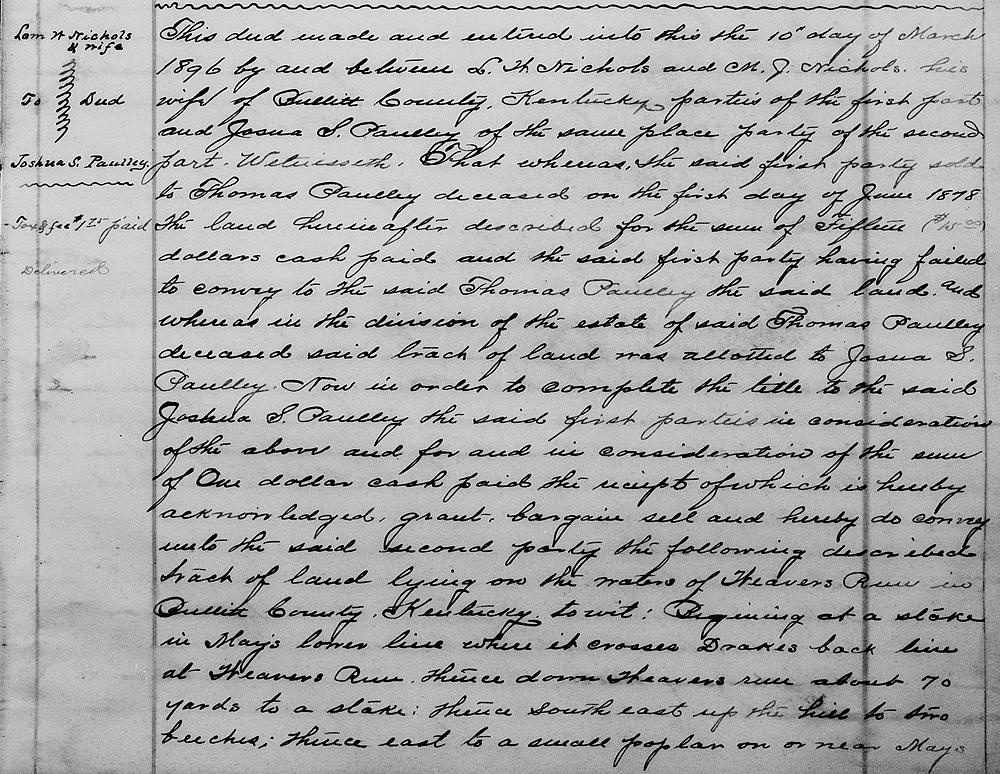 Lem W Nichols
& wife
To Deed
Joshua S. Paulley.
Tax & fee $1.75 paid
Delivered
This deed made and entered into this the 10" day of March
1896 by and between L. W Nichols and M. J. Nichols. his
wife of Bullitt County, Kentucky, parties of the first part
and Josua S. Paulley of the same place party of the second
part. Witnesseth. That whereas, the said first party sold
to Thomas Paulley deceased on the first day of June 1878
the land hereinafter described for the sum of Fifteen ($15.00)
dollars cash paid and the said first party having failed
to convey to the said Thomas Paulley the said land. and
whereas in the division of the estate of said Thomas Paulley
deceased said tract of land was allotted to Josua S.
Paulley. Now in order to complete the title to the said
Joshua S. Paulley the said first parties in consideration
of the above and for and in consideration of the sum
of One dollar cash paid the receipt of which is hereby
acknowledged, grant, bargain sell and hereby do convey
unto the said second party the following described
tract of land lying on the waters of Weavers Run in
Bullitt County, Kentucky, to wit: Begining at a stake
in Mays lower line where it crosses Drakes back line
at Weavers Run. thence down Weavers run about 70
yards to a stake: thence South east up the hill to two
beeches; thence east to a small poplar on or near Mays